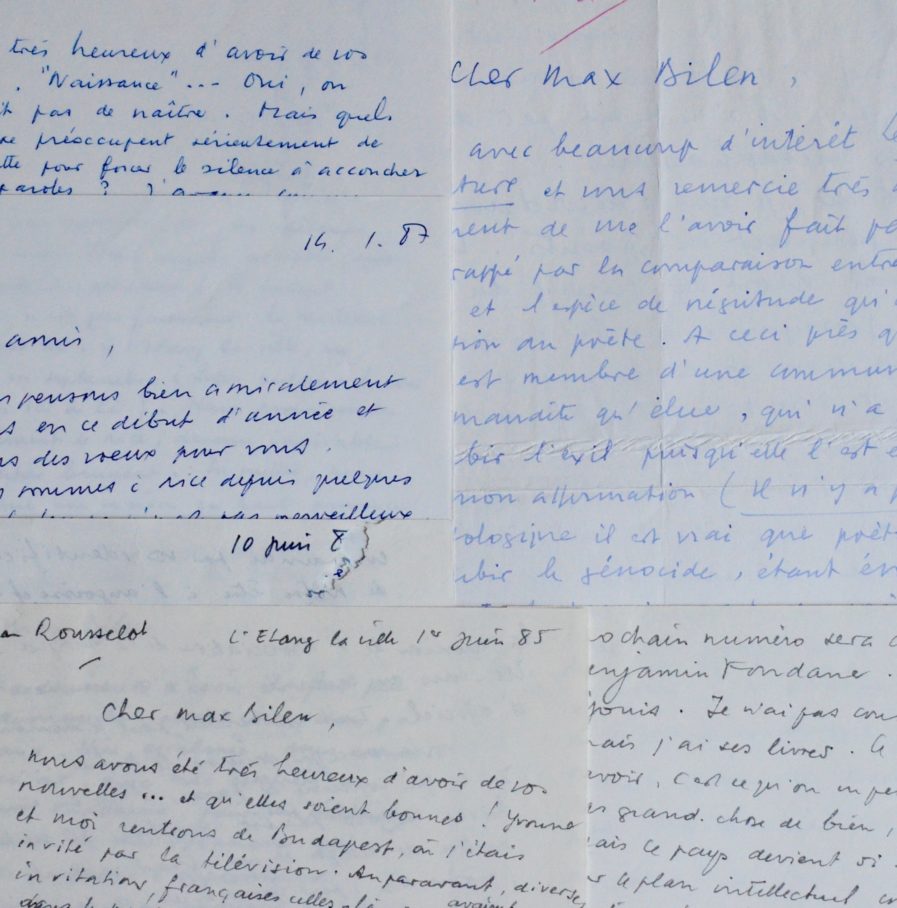 très heureux d'avoir de vos
. "Naissance"... Oui, on
it pas de naître. Mais quels
se préoccupent sérieusement de
tte pour forcer le silence à accoucher
paroles ?
14. 1. 87
amis,
pensons bien amicalement
s en ce début d'année et
s des voeux pour vous.
s sommes à Nice depuis quelques
pas merveilleux
10 juin 8
Cher Max Bilen,
avec beaucoup d'intérêt
ture et vous remercie très
ment de me l'avoir fait
rappé par la comparaison entre
et l'espèce de négritude qu'
tion du poète. A ceci près
est membre d'une commun
maudite qu'élue, qui n'a
bir l'exil puisqu'elle l'est
non affirmation (Il n'y a
ologique il est vrai que poète
bir le génocide, étant
n Rousselot L'Etang la ville 1er juin 85
Cher Max Bilen,
nous avons été très heureux d'avoir de vos
nouvelles... et qu'elles soient bonnes ! Yvonne
et moi rentrons de Budapest, où j'étais
invité par la télévision. Auparavant, diverses
invitations, françaises celles-là, avaient
ochain numéro sera
enjamin Fondane.
jouis. Je n'ai pas
mais j'ai ses livres.
avoir, c'est ce qu'on
s grand-chose de bien,
ais ce pays devient si
r le plan intellectuel